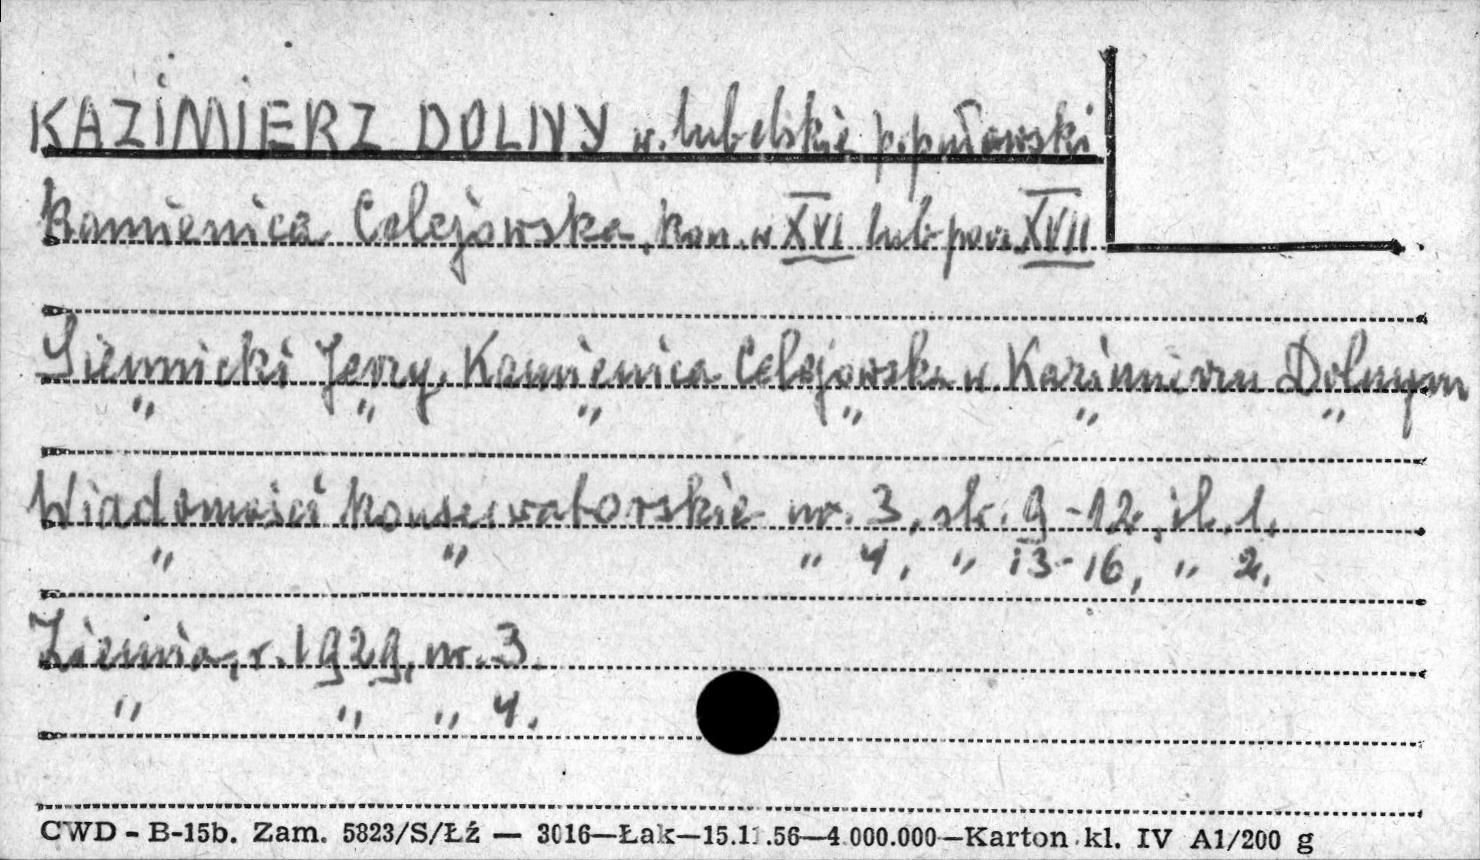 KAZIMIERZ DOLNY w. lubelskie p. puławski
Kamienica Celejowska, kon. w XVI lub pocz. XVII
Siennicki Jerzy, Kamienica Celejowska w Kazimierzu Dolnym
" " " " " "
Wiadomości konserwatorskie nr. 3, str. 9-12, il. 1.
" " " 4, " 13-16, " 2.
Ziemia, r. 1929, nr. 3.
" " " 4.
CWD - B-15b. Zam. 5823/S/Łź — 3016—Łak—15.11.56—4.000.000—Karton kl. IV A1/200 g